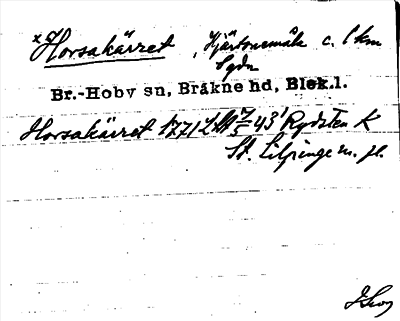 x Horsakärret, Hjärtsnemåla c. 1 km
Sydn
Br.-Hoby sn, Bräkne hd, Blek.l.
Horsakärret 1771 LSA 7/5 43¹ Rydsten K
St. Silpinge m. fl.